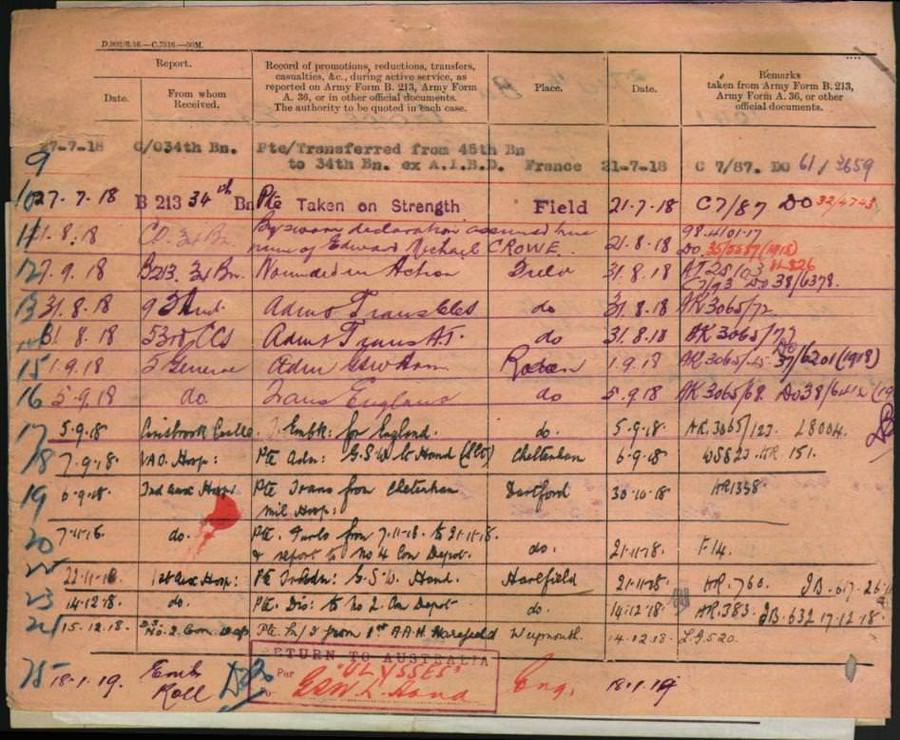 D.902/8.16.—C.7316.—50M.
Report.
Date.
From whom Received.
Record of promotions, reductions, transfers,
casualties, &c., during active service, as
reported on Army Form B. 213, Army Form
A. 36, or in other official documents.
The authority to be quoted in each case.
Place.
Date.
Remarks
taken from Army Form B. 213,
Army Form A. 36, or other
official documents.
9 27-7-18 C/O34th Bn. Pte/Transferred from 45th Bn
to 34th Bn. ex A.I.B.D. France 21-7-18 C 7/87. DO 61/3659
10 27.7.18 B 213 34th Bn Pte Taken on Strength Field 21.7.18 C7/87 DO 32/4743
11 21.8.18 CO. 34 Bn. By sworn declaration assumed true
name of Edward Michael CROWE. 21.8.18 98.4101.17
DO 35/5587(1918)
12 7.9.18 B213. 34 Bn. Wounded in Action Field 31.8.18
C7/93 DO 38/6378.
13 31.8.18 Adm & Trans CCS do 31.8.18 AK 3065/72
31.8.18 53rd CCS Adm & Trans AT. do 31.8.18 AK 3065/77
15 1.9.18 5 General Adm GSW Rouen 1.9.18 37/6201(1918)
16 5.9.18 do. Trans England do 5.9.18 AK 3065/68.
17 5.9.18 Embk: for England. do. 5.9.18 AR.3065/123. L8004.
18 7.9.18 VAD. Hosp: Pte Adm: G.S.W. L Hand Cheltenham 6.9.18 W5823. AR 151.
19 Pte Trans from Cheltenham
Mil Hosp: Dartford 30.10.18 AR1358
20 do. Pte. Furlo from 7.11.18. to 21.11.18.
& report to No 4 Con Depot. do. 21.11.18. F.14.
22.11.18. 1st Aux Hosp: G.S.W. Hand. Harefield 21.11.18 AR.760.
23 14.12.18. do. Pte. Dis: to No 2. Con Depot do. 14.12.18. AR.383. JB.632 17.12.18.
24 15.12.18. No. 2 Con. Dep Pte M/I from 1st A.A.H. Harefield Weymouth. 14.12.18.
RETURN TO AUSTRALIA
25 18.1.19. Emb
Roll D23 Per "ULYSSES"
GSW. L. Hand Eng. 18.1.19